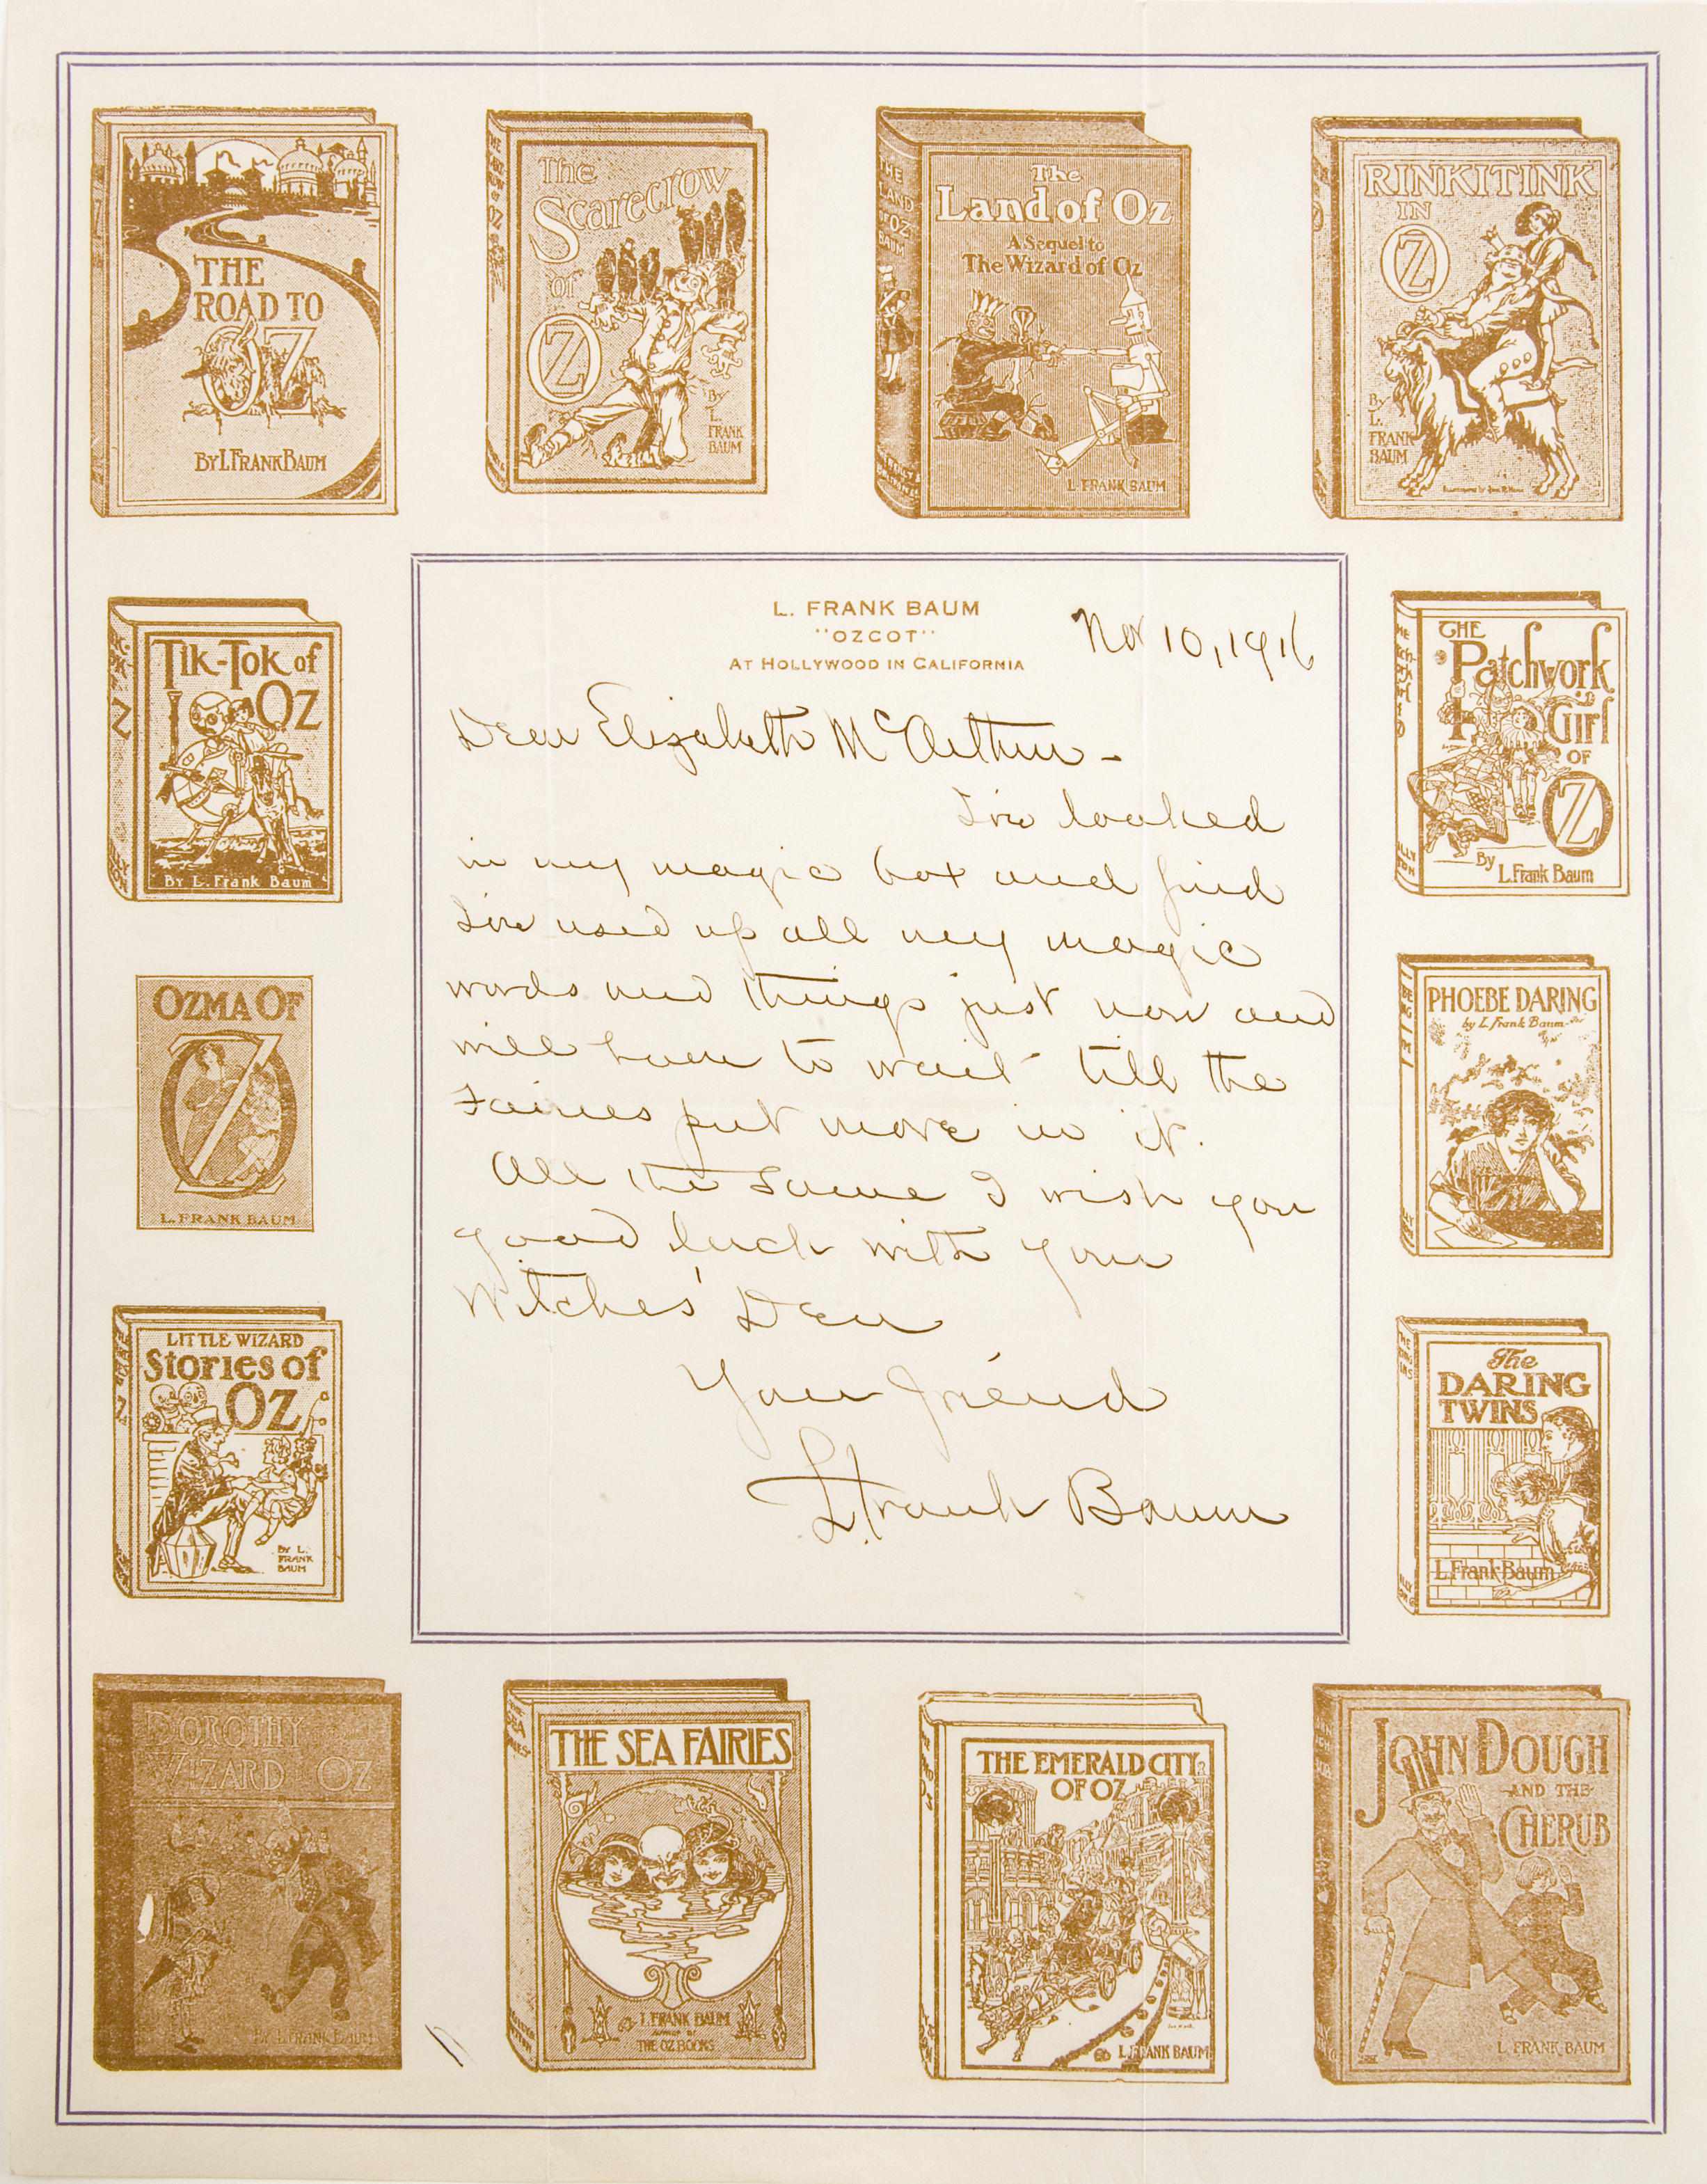 THE
ROAD TO
OZ
BY L. FRANK BAUM
The
Scarecrow
of
OZ
By
L.
FRANK
BAUM
THE
LAND
OF OZ
BAUM
The
Land of Oz
A Sequel to
The Wizard of Oz
L. FRANK BAUM
RINKITINK
IN
OZ
By
L.
FRANK
BAUM
Tik-Tok of
OZ
By L. Frank Baum
L. FRANK BAUM
"OZCOT"
AT HOLLYWOOD IN CALIFORNIA
Nov 10, 1916
Dear Elizabeth McArthur -
I've looked
in my magic box and find
I've used up all my magic
words and things just now and
will have to wait till the
Fairies put more in it.
All the same I wish you
good luck with your
Witches' Den
Your friend
L. Frank Baum
THE
Patchwork
Girl
OF
OZ
By
L. Frank Baum
OZMA OF
OZ
L. FRANK BAUM
PHOEBE DARING
by L. Frank Baum
LITTLE WIZARD
Stories of
OZ
BY L.
FRANK
BAUM
The
DARING
TWINS
L. Frank Baum
DOROTHY
WIZARD OZ
BY L. FRANK BAUM
THE SEA FAIRIES
L. FRANK BAUM
AUTHOR OF
THE OZ BOOKS
THE EMERALD CITY
OF OZ
L. FRANK BAUM
JOHN DOUGH
AND THE
CHERUB
L. FRANK BAUM